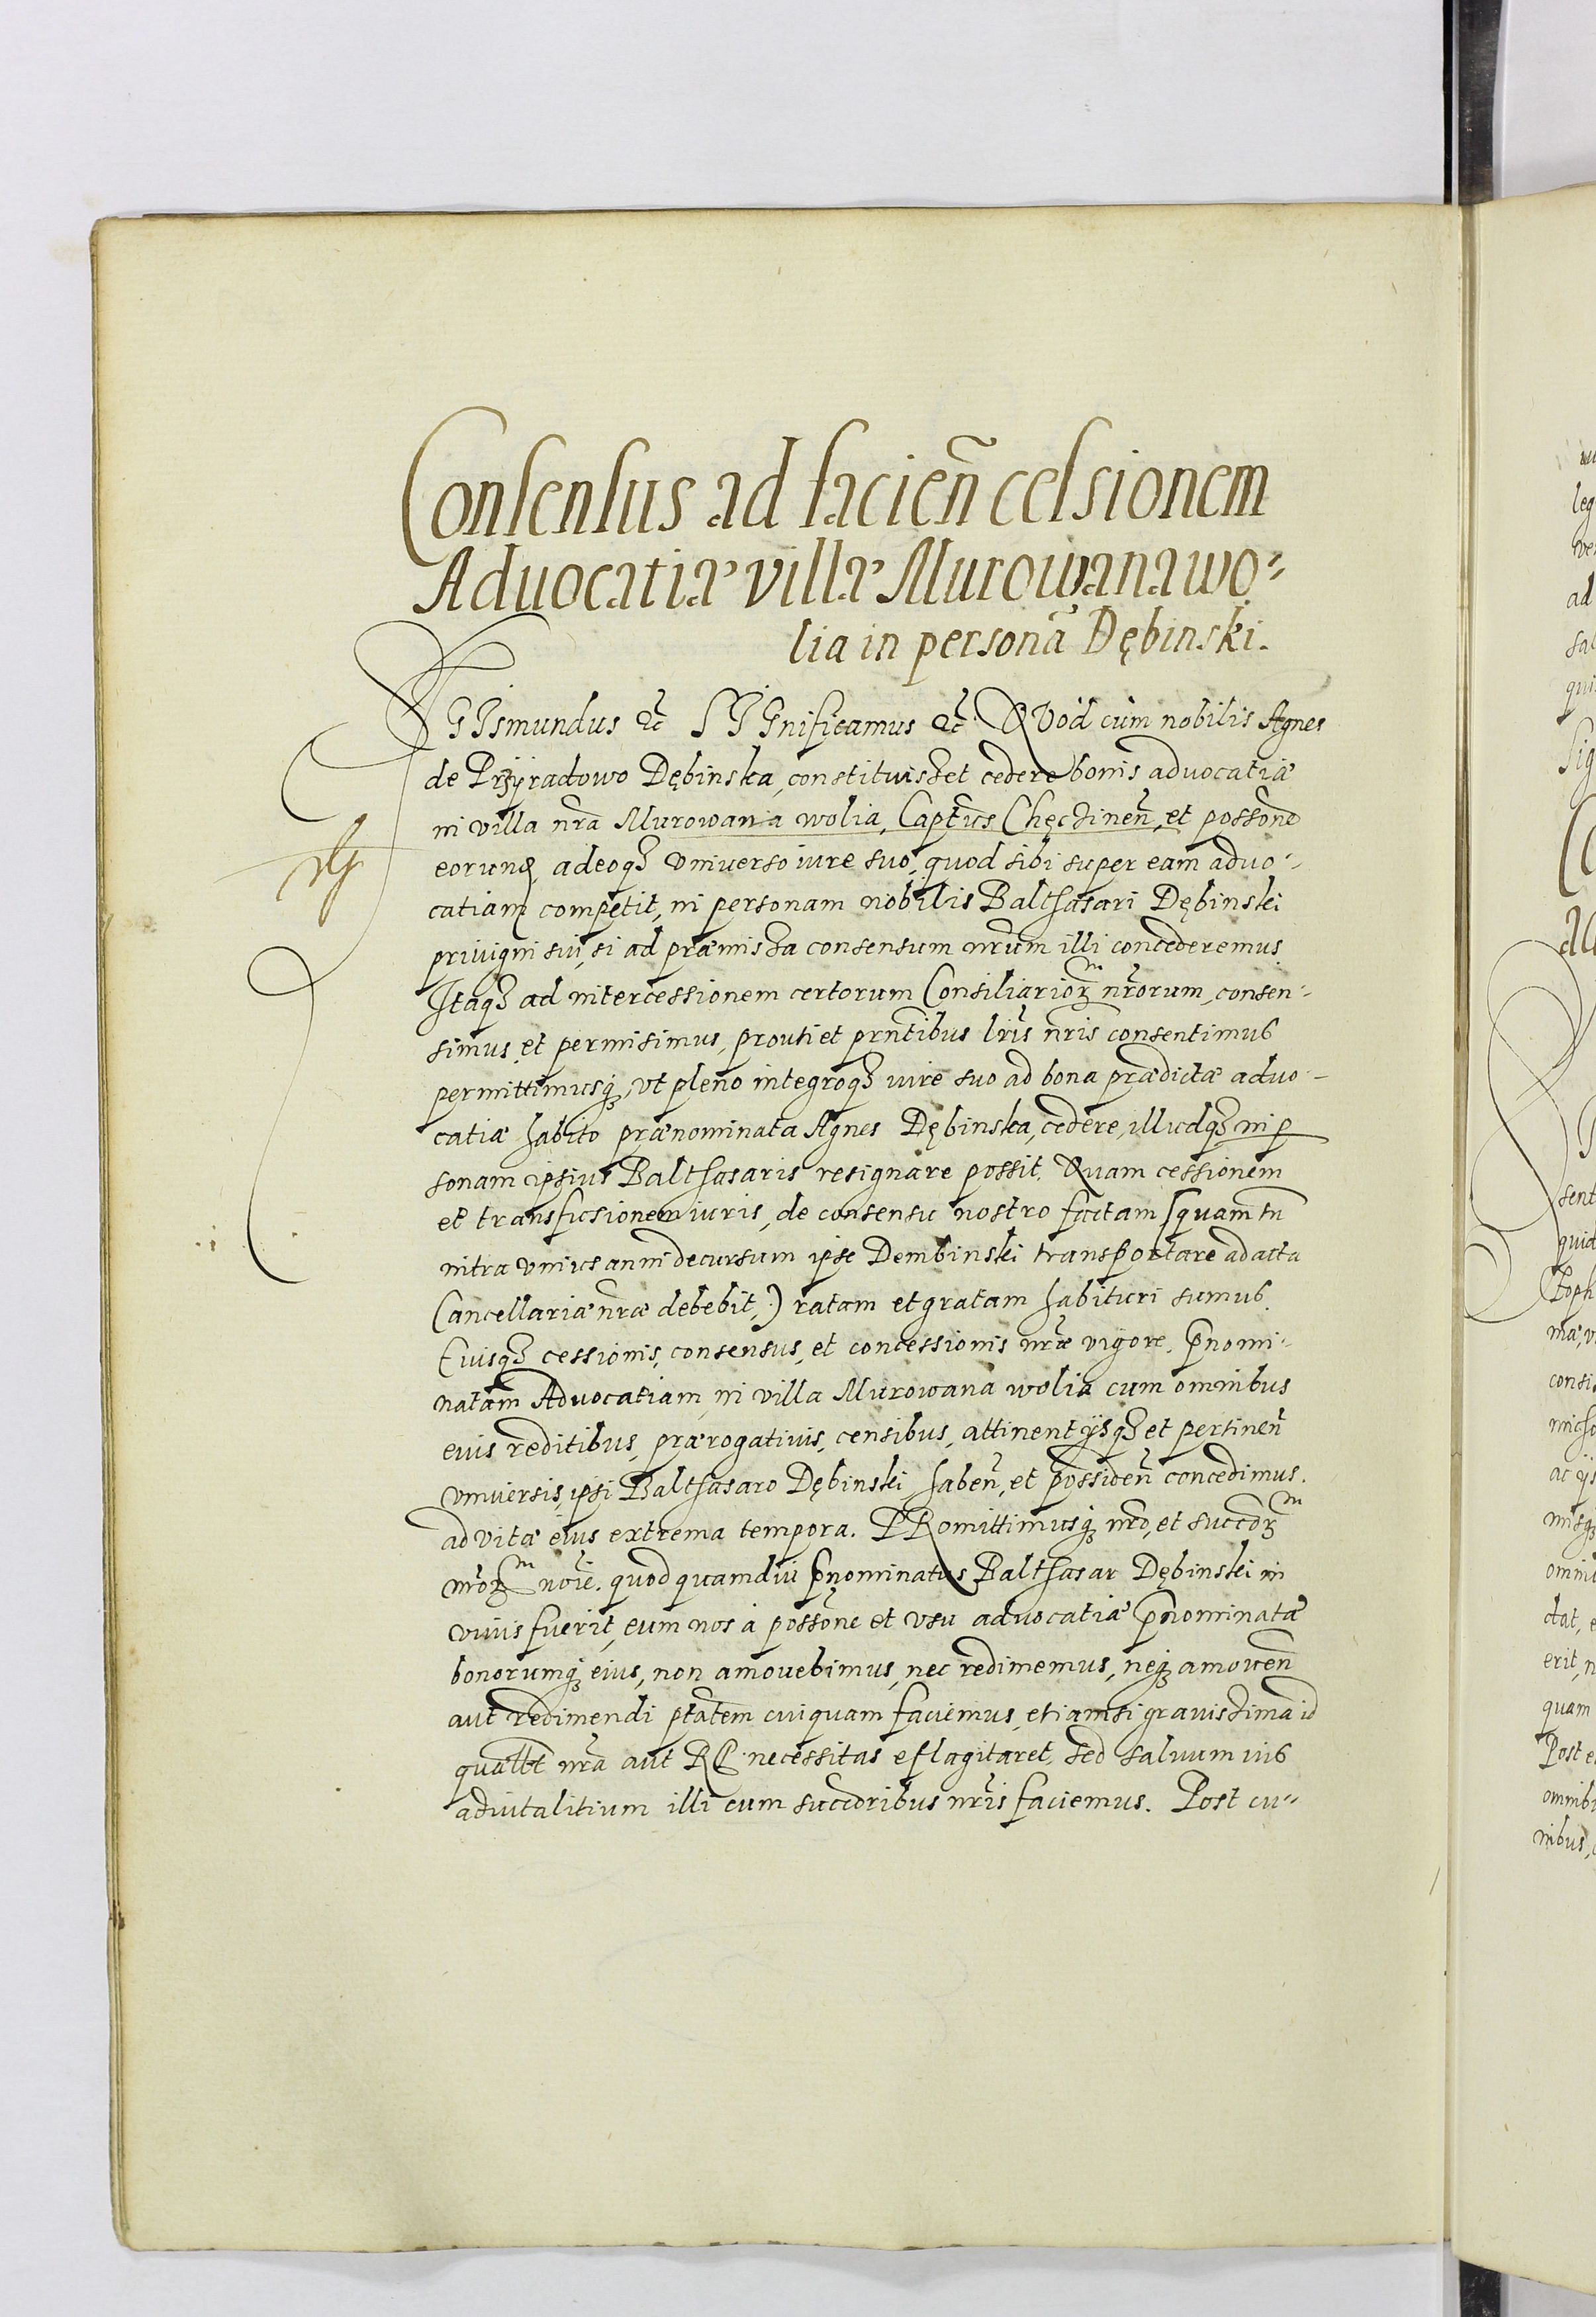 Consensus ad facien̄ cessionem
Advocatiæ villæ Murowana wo⸗
lia in personā Dębinski.
SIGIsmundus etc̃ SIGnificamus etc̃. QVod cum nobilis Agnes
de Przÿradowo Dębinska, constituisset cedere bonis advocatiæ
in villa nrã Murowana wolia, Capt̃us Chęczinen̄, et possōne
eorunđ, adeoqȝ vniverso iure suo, quod sibi super eam advo-
catiam competit, in personam nobilis Balthasari Dębinski
privigni sui, si ad præmissa consensum nrũm illi concederemus
Itaqȝ ad intercessionem certorum Consiliarioꝝᵐ nrõrum, consen-
simus, et permisimus, prouti et prñtibus lrĩs nrĩs consentimus
permittimusqȝ, vt pleno integroqȝ iure suo ad bona prædictæ advo-
catiæ habito prænominata Agnes Dębinska, cedere, illudqȝ in ꝑ
sonam ipsius Balthasaris resignare possit. Quam cessionem
et transfusionem iuris, de consensu nostro factam (quam tn̄
intra vnius anni decursum ipse Dembinski transportare ad acta
Cancellariæ nræ̃ debebit,) ratam et gratam habituri sumus.
Cuisqȝ cessionis, consensus, et concessionis nræ̃ vigore, p̄nomi-
natam Advocatiam, in villa Murowana wolia cum omnibus
euis reditibus, prærogativis, censibus, attinentÿsqȝ et pertinen̄
vniversis, ipsi Balthasaro Dębinski haben̄, et possiden̄ concedimus.
ad vitæ eius extrema tempora. PRomittimusqȝ nrõ, et succõꝝᵐ
nrõꝝᵐ noĩe. quod quamdiu p̄nominatus Balthasar Dębinski in
vivis fuerit, eum nos à possōne et vsu advocatiæ p̄nominatæ
bonorumqȝ eius, non amovebimus, nec redimemus, neqȝ amoven̄
aut redimendi ptãtem cuiquam faciemus, etiamsi gravissima id
quællt̃ nrã aut RP. necessitas eflagitaret, sed salvum ius
advitalitium illi cum succõribus nrĩs faciemus. Post cu⸗